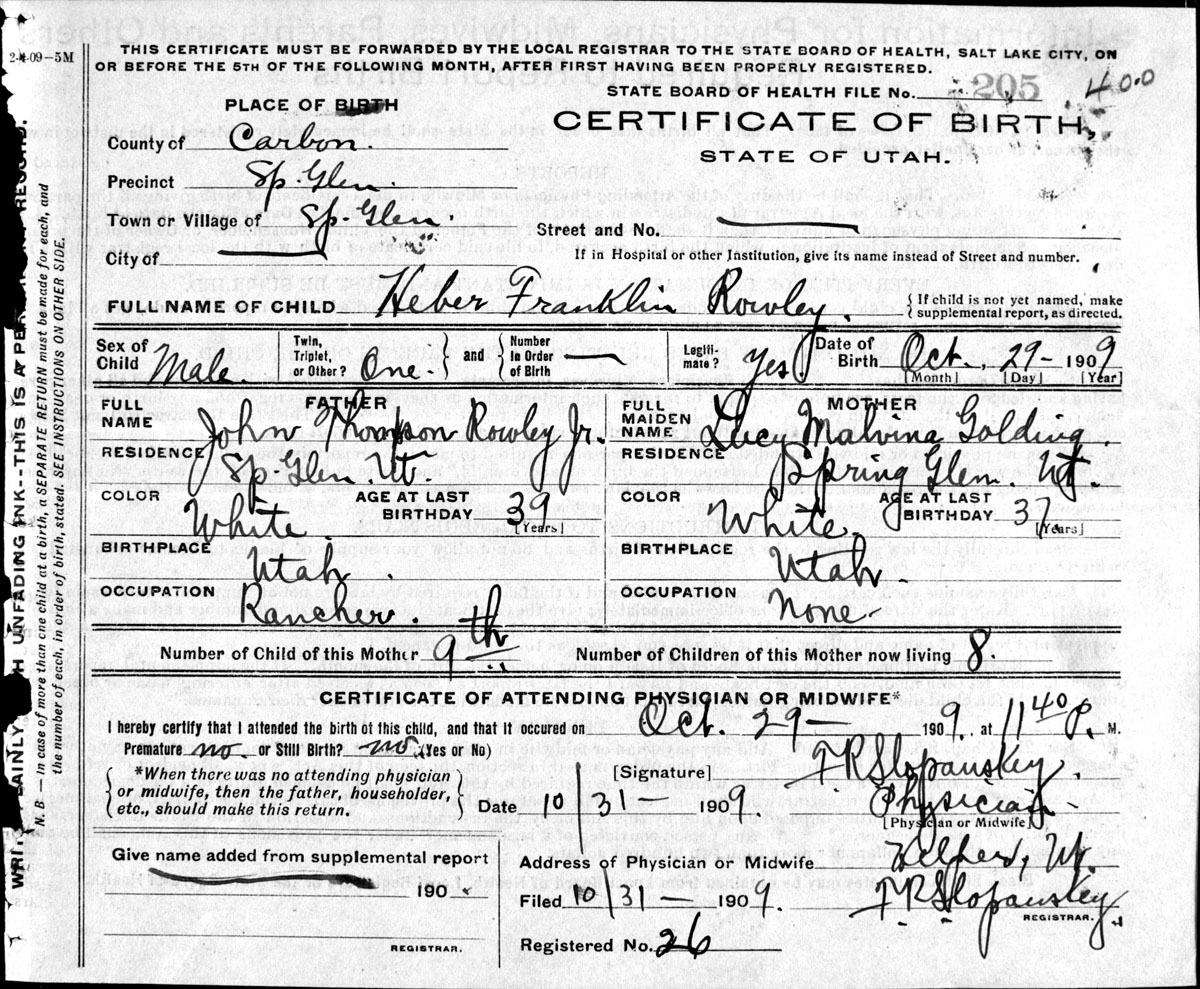 2-4-09-5M
THIS CERTIFICATE MUST BE FORWARDED BY THE LOCAL REGISTRAR TO THE STATE BOARD OF HEALTH, SALT LAKE CITY, ON
OR BEFORE THE 5TH OF THE FOLLOWING MONTH, AFTER FIRST HAVING BEEN PROPERLY REGISTERED.
STATE BOARD OF HEALTH FILE No. 205 400
PLACE OF BIRTH
CERTIFICATE OF BIRTH
STATE OF UTAH.
County of Carbon.
Precinct Sp. Glen.
Town or Village of Sp. Glen.
Street and No. —
City of —
If in Hospital or other Institution, give its name instead of Street and number.
FULL NAME OF CHILD Heber Franklin Rowley. {If child is not yet named, make
supplemental report, as directed.
Sex of Child Male. Twin, Triplet, or Other? One. and Number in Order of Birth — Legiti-mate? Yes. Date of Birth Oct. 29 - 1909
[Month] [Day] [Year]
FATHER
FULL NAME John Thompson Rowley Jr.
RESIDENCE Sp. Glen. Ut.
COLOR White. AGE AT LAST BIRTHDAY 39 [Years]
BIRTHPLACE Utah.
OCCUPATION Rancher.
MOTHER
FULL MAIDEN NAME Lucy Malvina Golding.
RESIDENCE Spring Glen. Ut.
COLOR White. AGE AT LAST BIRTHDAY 37 [Years]
BIRTHPLACE Utah.
OCCUPATION None.
Number of Child of this Mother 9th Number of Children of this Mother now living 8.
CERTIFICATE OF ATTENDING PHYSICIAN OR MIDWIFE*
I hereby certify that I attended the birth of this child, and that it occured on Oct. 29 — 1909. at 11 40 P. M.
Premature no or Still Birth? no. (Yes or No)
*When there was no attending physician
or midwife, then the father, householder,
etc., should make this return.
[Signature] F R Slopansky.
Date 10/31 1909. Physician.
[Physician or Midwife]
Give name added from supplemental report
190
REGISTRAR.
Address of Physician or Midwife Helper, Ut.
Filed 10/31 — 1909. F R Slopansky
REGISTRAR.
Registered No. 26
WRITE PLAINLY WITH UNFADING INK--THIS IS A PERMANENT RECORD.
N. B. — In case of more than one child at birth, a SEPARATE RETURN must be made for each, and
the number of each, in order of birth, stated. SEE INSTRUCTIONS ON OTHER SIDE.